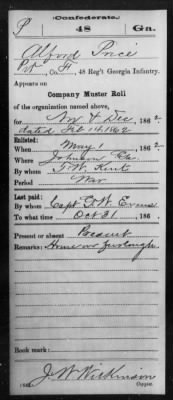 Confederate.
P 48 Ga.
Alford Price
Pvt, Co. F, 48 Reg't Georgia Infantry.
Appears on
Company Muster Roll
of the organization named above,
for Nov & Dec, 186 2.
dated Feb 14, 1862
Enlisted:
When May 1, 186 2.
Where Johnson Co.
By whom T. W. Kent
Period War
Last paid:
By whom Capt G. W. Evans
To what time Oct 31, 186
Present or absent Present
Remarks: Home on furlough
Book mark:
J W Wilkinson
Copyist.